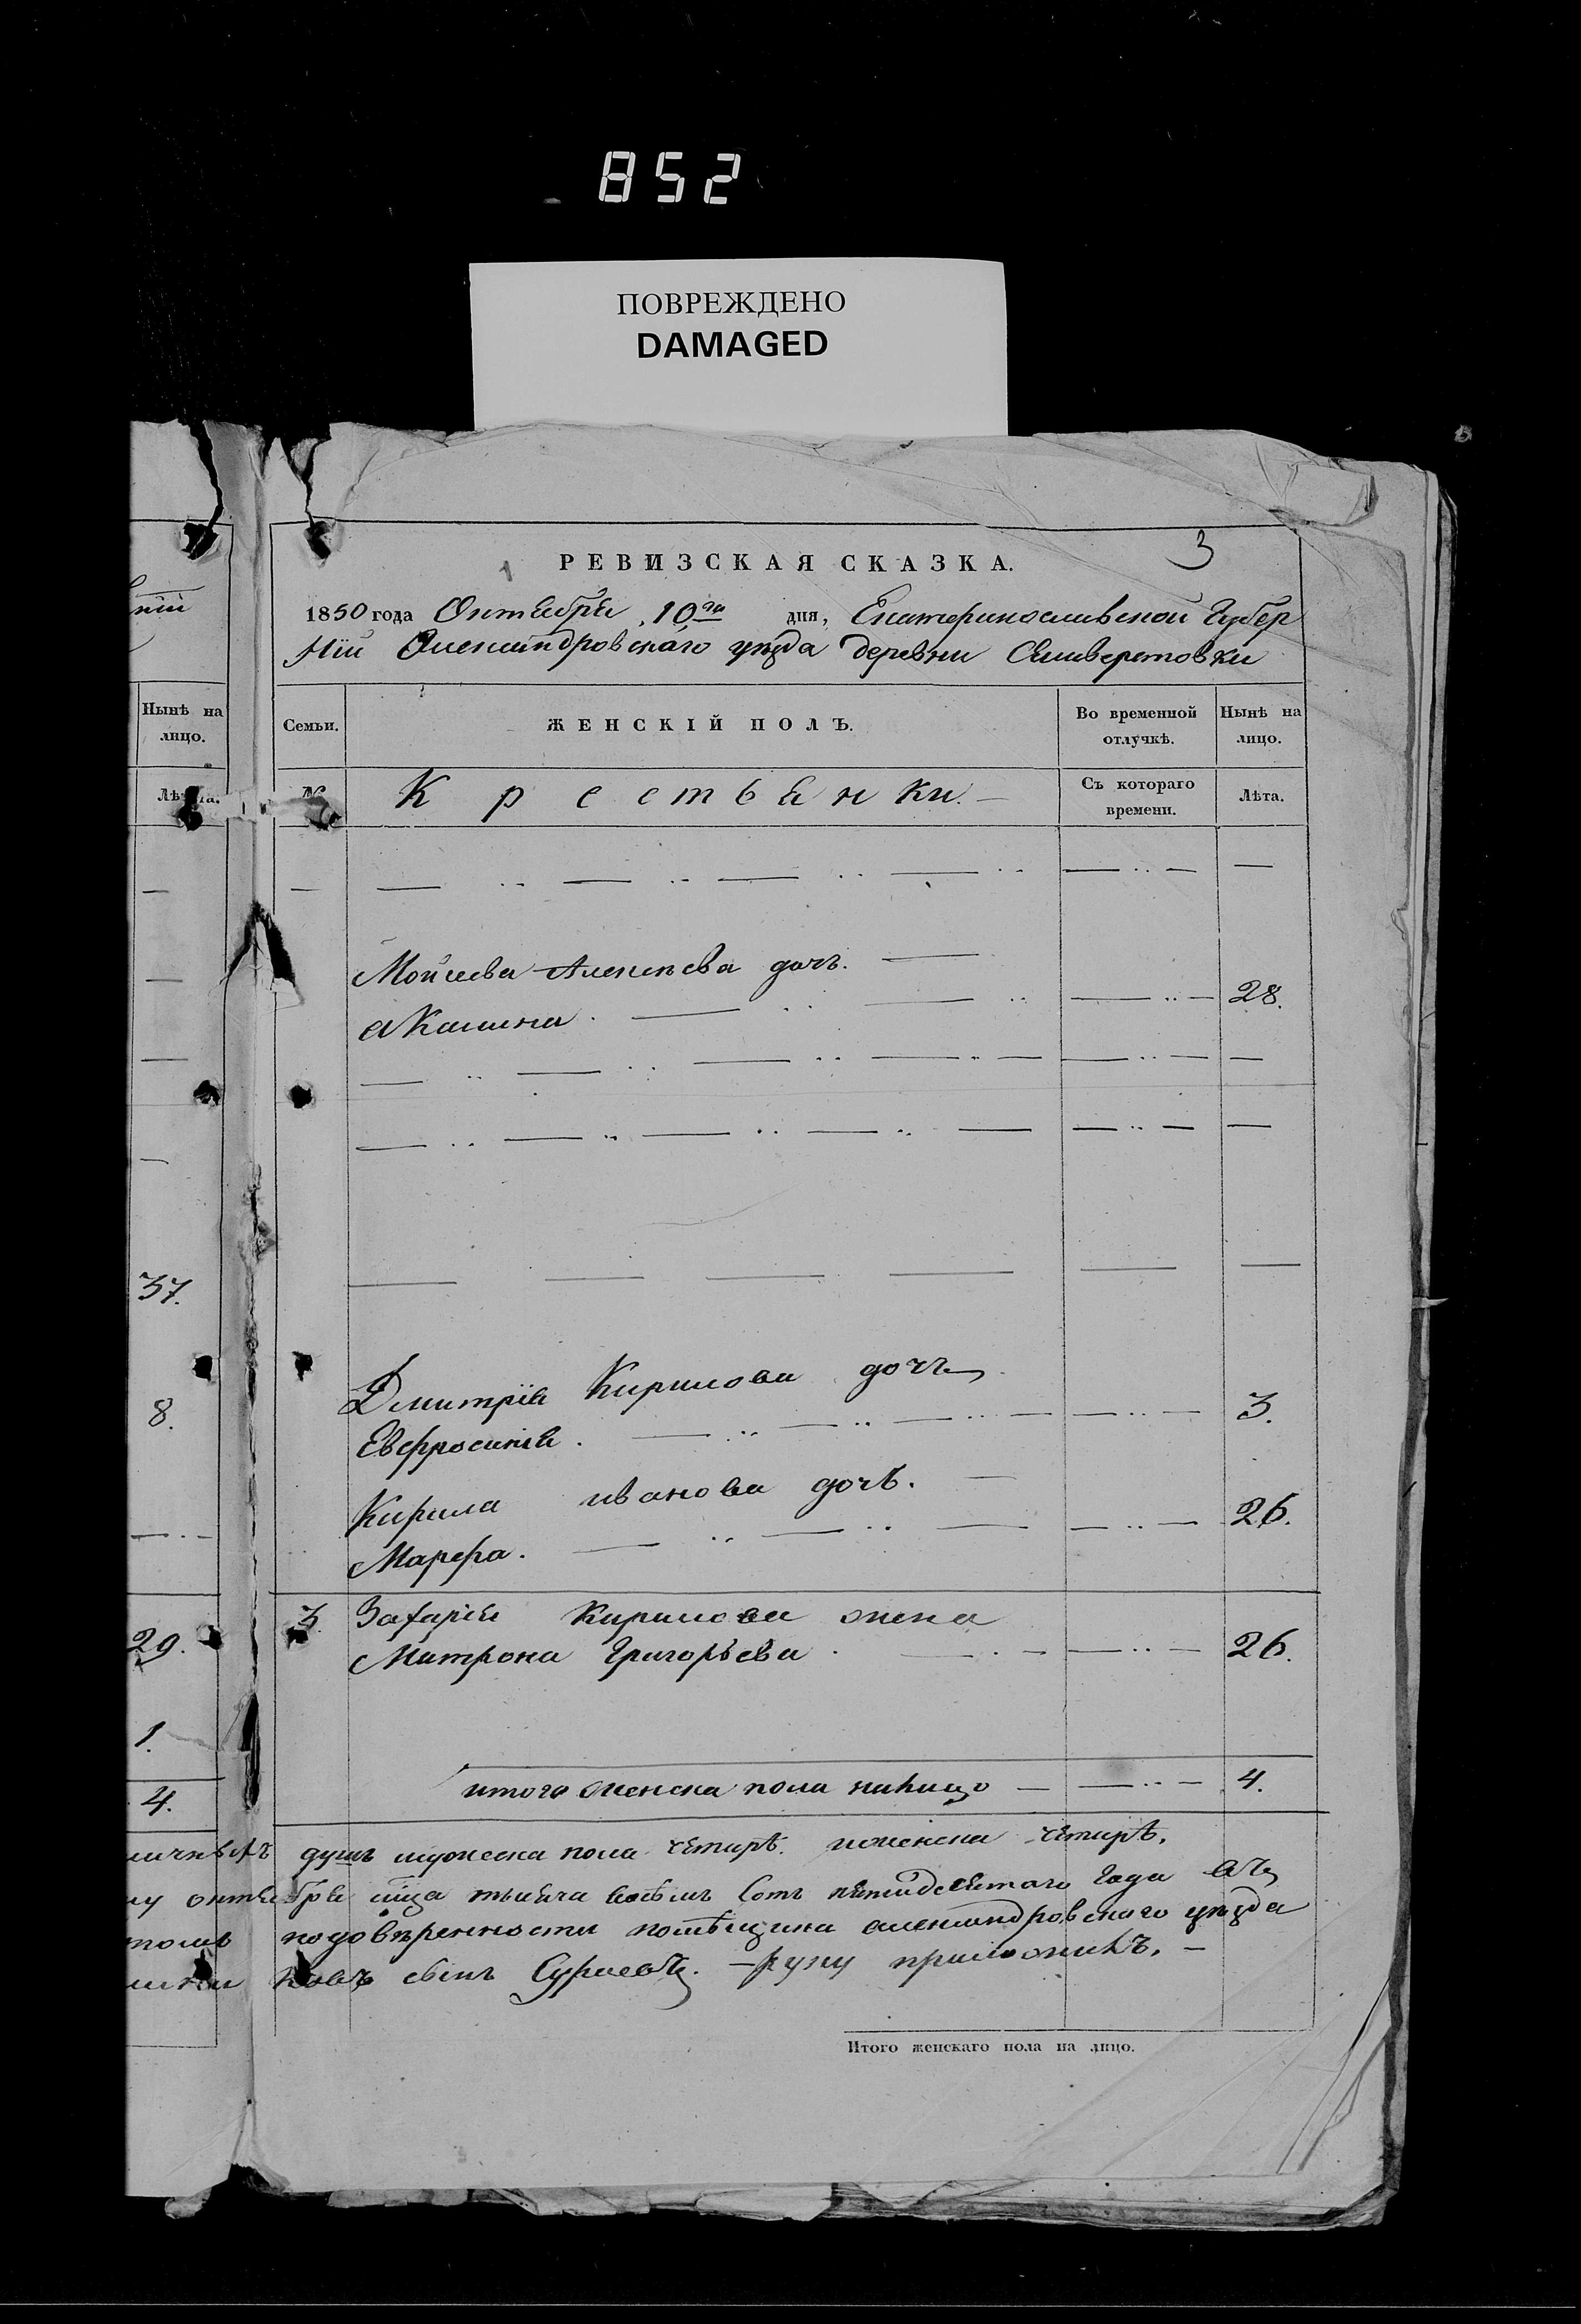 852
ПОВРЕЖДЕНО
DAMAGED
3
РЕВИЗСКАЯ СКАЗКА.
1850 года Октября 10го дня, Екатеринославской Губер
ніи Александровскаго уѣзда деревни Селиверстовки
ній
Нынѣ на лицо.
Лѣта.
Семьи.
ЖЕНСКІЙ ПОЛЪ.
Во временной отлучкѣ.
Нынѣ на лицо.
№
Крестьянки.
Съ котораго времени.
Лѣта.
Мойсева Алексѣева дочь.
Акилина. 28.
37.
Дмитрія Кирилова дочь
8.
Евфросинія. 3.
Кирила иванова дочь.
Марфа. 26.
3. Захарія Кирилова жена
29.
Митрона Григорьева. 26.
1.
итого женска пола налицо 4.
4.
личныхъ душъ мужеска пола четырѣ. иженска четырѣ.
октября мца тысяча восѣмъ Сотъ пятидесятаго Года
подовѣренности помѣщика александровского уѣзда
руку приложилъ.
Итого женскаго пола на лицо.